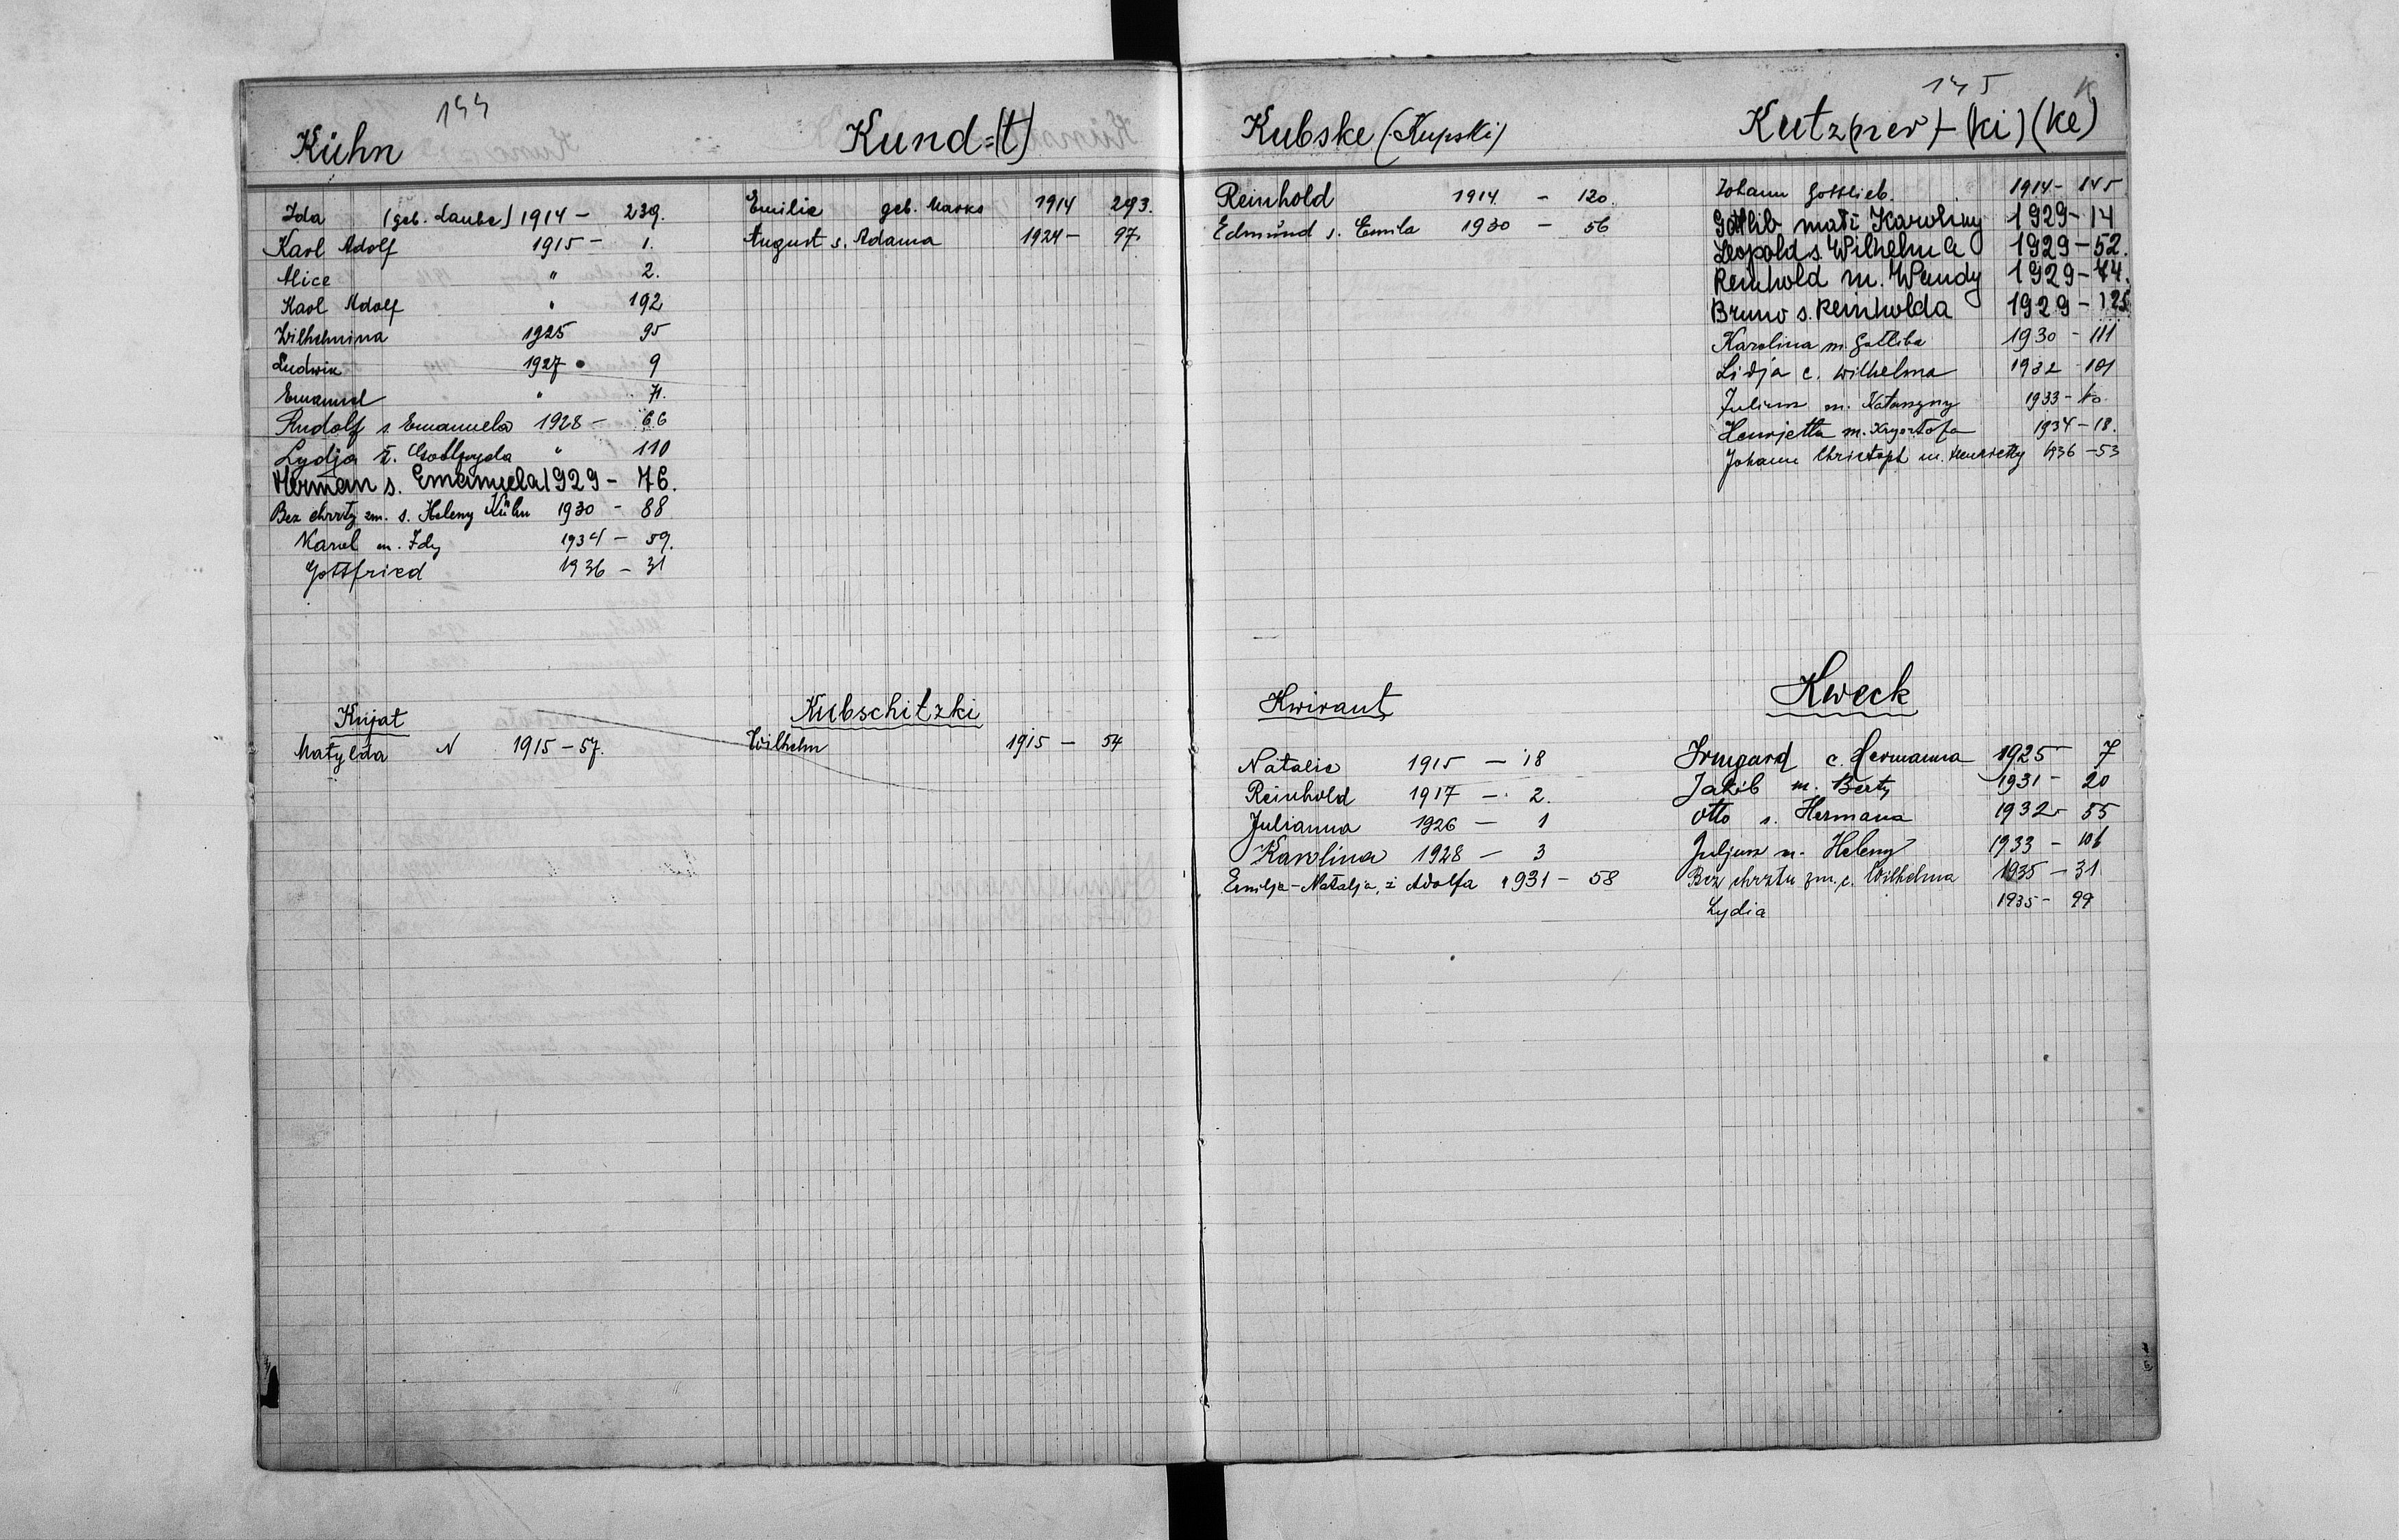 144
Kühn
Ida (geb. Laube) 1914 - 239.
Karl Adolf 1915 - 1.
Alice " 2.
Karl Adolf " 192
Wilhelmina 1925 95
Ludwik 1927 9
Emanuel " 71.
Rudolf s. Emanuela 1928 - 66
Lydja ż. " 110
Herman s. Emanuela 1929 - 76.
Bez chrztu zm. s. Heleny Kühn 1930 - 88
Karol m. Idy 1934 - 59.
Gottfried 1936 - 31
Kund=(t)
Emilie geb. Marks 1914 293.
August s. Adama 1924 - 97.
Kujat
Matylda N 1915 - 57.
Kubschitzki
Wilhelm 1915 - 54
145
K
Kubske (Kupski)
Reinhold 1914 - 120.
Edmund s. Emila 1930 - 56
Kutz(ner)-(ki)(ke)
Johann Gottlieb. 1914 - 145
Gottlib mąż Karoliny 1929 - 14
Leopold s. Wilhelma 1929 - 52.
Reinhold m. Wandy 1929 - 74.
Bruno s. Reinholda 1929 - 125
Karolina m. Gottliba 1930 - 111
Lidja c. Wilhelma 1932 - 101
Juliusz m. Katarzyny 1933 -
Henrjetta m. Krysztofa 1934 - 18.
Johann Christoph m. Henrietty 1936 - 53
Kwirant
Natalie 1915 - 18
Reinhold 1917 - 2.
Julianna 1926 - 1
Karolina 1928 - 3
Emilja-Natalja, ż Adolfa 1931 - 58
Kweck
Irmgard c. Hermanna 1925 - 7
Jakób m. Berty 1931 - 20
Otto s. Hermana 1932 - 55
Juljusz m. Heleny 1933 - 106
Bez chrztu zm. c. Wilhelma 1935 - 31
Lydia 1935 - 99